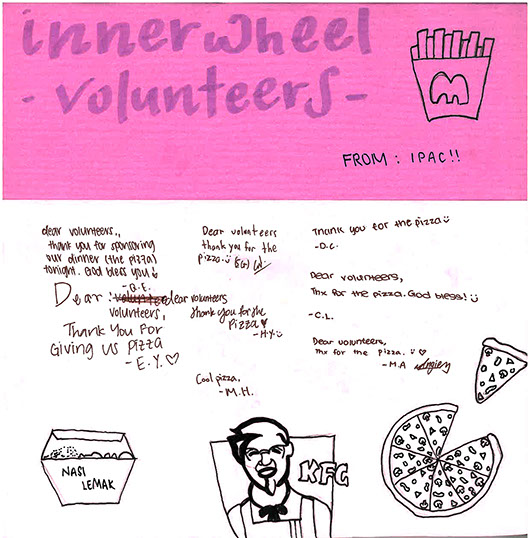 innerwheel
- volunteers -
M
FROM : IPAC!!
dear volunteers.,
thank you for sponsoring
our dinner (the pizza)
tonight. God bless you
Dear volunteers
thank you for the
pizza.
Thank you for the pizza
-D.C.
Dear
volunteers,
Thank You For
Giving us pizza
- E.Y.
dear volunteers
thank you for the
pizza
-H.Y.
Dear volunteers,
Thx for the pizza. God bless!
-C.L.
Dear volunteers,
thx for the pizza.
-M.A
Cool pizza.
-M.H.
NASI
LEMAK
KFC